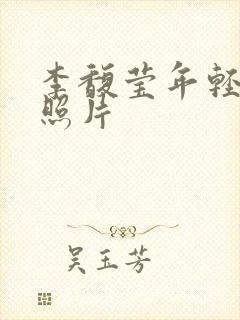 李馥莹年轻
照片
吴玉芳